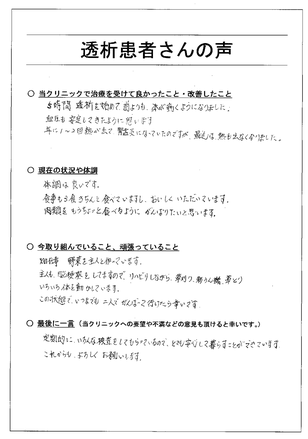 透析患者さんの声
○ 当クリニックで治療を受けて良かったこと・改善したこと
5時間透析を始めて 前よりも、体が軽くなりました。
血圧も安定してきたように思います
年に1~2回熱が出て 腎盂炎になっていたのですが、最近は 熱も出なくなりました。
○ 現在の状況や体調
体調は良いです。
食事も3食きちんと食べていますし、おいしくいただいています。
肉類をもうちょっと食べれるように がんばりたいと思います。
○ 今取り組んでいること、頑張っていること
野菜を主人と作っています。
主人も
してますので、リハビリしながら、草刈り、
草とり
いろいろ体を動かしています。
この状態で、いつまでも 二人で がんばって行けたら幸いです
○ 最後に一言（当クリニックへの要望や不満などの意見も頂けると幸いです。）
定期的に、いろんな検査をしてもらっているので、とても安心して暮らすことができています。
これからも、よろしく お願いします。